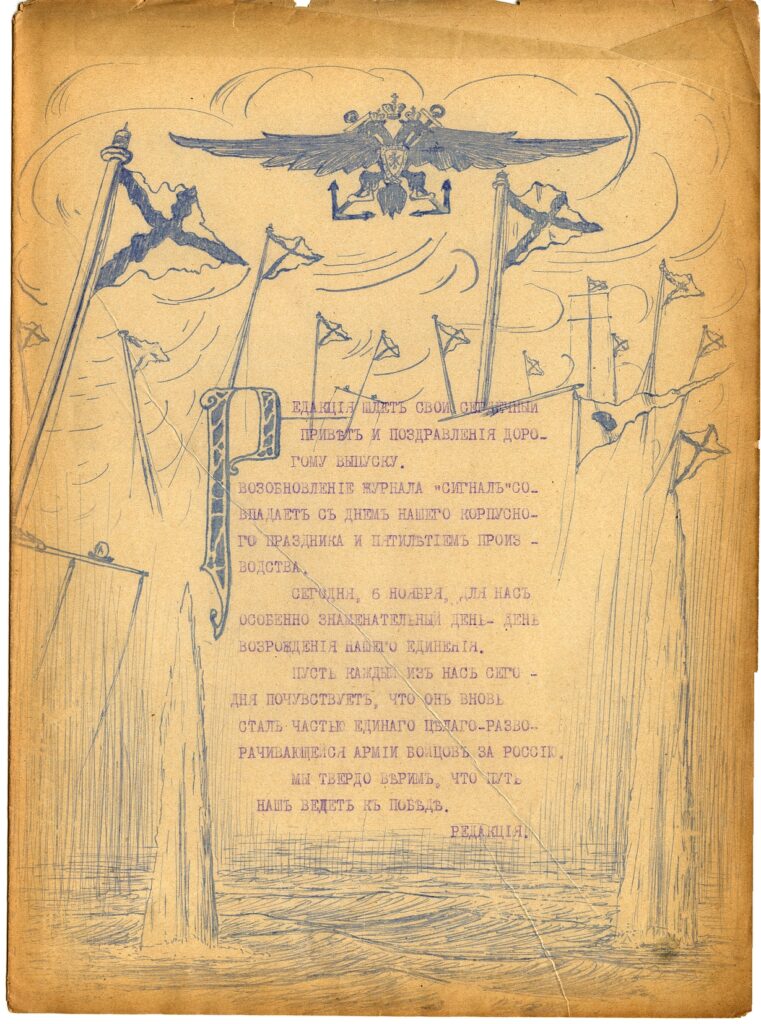 РЕДАКЦІЯ ШЛЕТЪ СВОЙ СЕРДЕЧНЫЙ
ПРИВѢТЪ И ПОЗДРАВЛЕНІЯ ДОРО-
ГОМУ ВЫПУСКУ.
ВОЗОБНОВЛЕНІЕ ЖУРНАЛА "СИГНАЛЪ"СО-
ВПАДАЕТЪ СЪ ДНЕМЪ НАШЕГО КОРПУСНО-
ГО ПРАЗДНИКА И ПЯТИЛѢТІЕМЪ ПРОИЗ -
ВОДСТВА.
СЕГОДНЯ, 6 НОЯБРЯ, ДЛЯ НАСЪ
ОСОБЕННО ЗНАМЕНАТЕЛЬНЫЙ ДЕНЬ- ДЕНЬ
ВОЗРОЖДЕНІЯ НАШЕГО ЕДИНЕНІЯ.
ПУСТЬ КАЖДЫЙ ИЗЪ НАСЪ СЕГО -
ДНЯ ПОЧУВСТВУЕТЪ, ЧТО ОНЪ ВНОВЬ
СТАЛЪ ЧАСТЬЮ ЕДИНАГО ЦѢЛАГО-РАЗВО-
РАЧИВАЮЩЕЙСЯ АРМІИ БОЙЦОВЪ ЗА РОССІЮ.
МЫ ТВЕРДО ВѢРИМЪ, ЧТО ПУТЬ
НАШЪ ВЕДЕТЪ КЪ ПОБѢДѢ.
РЕДАКЦІЯ.